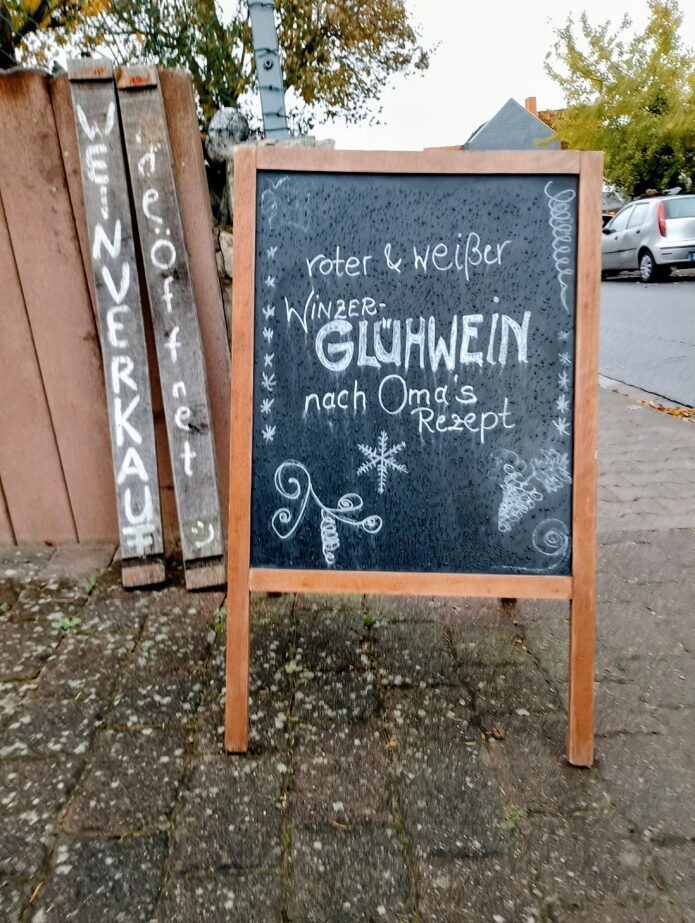 WEINVERKAUF
geöffnet :)
roter & weißer
WINZER-
GLÜHWEIN
nach Oma's
Rezept